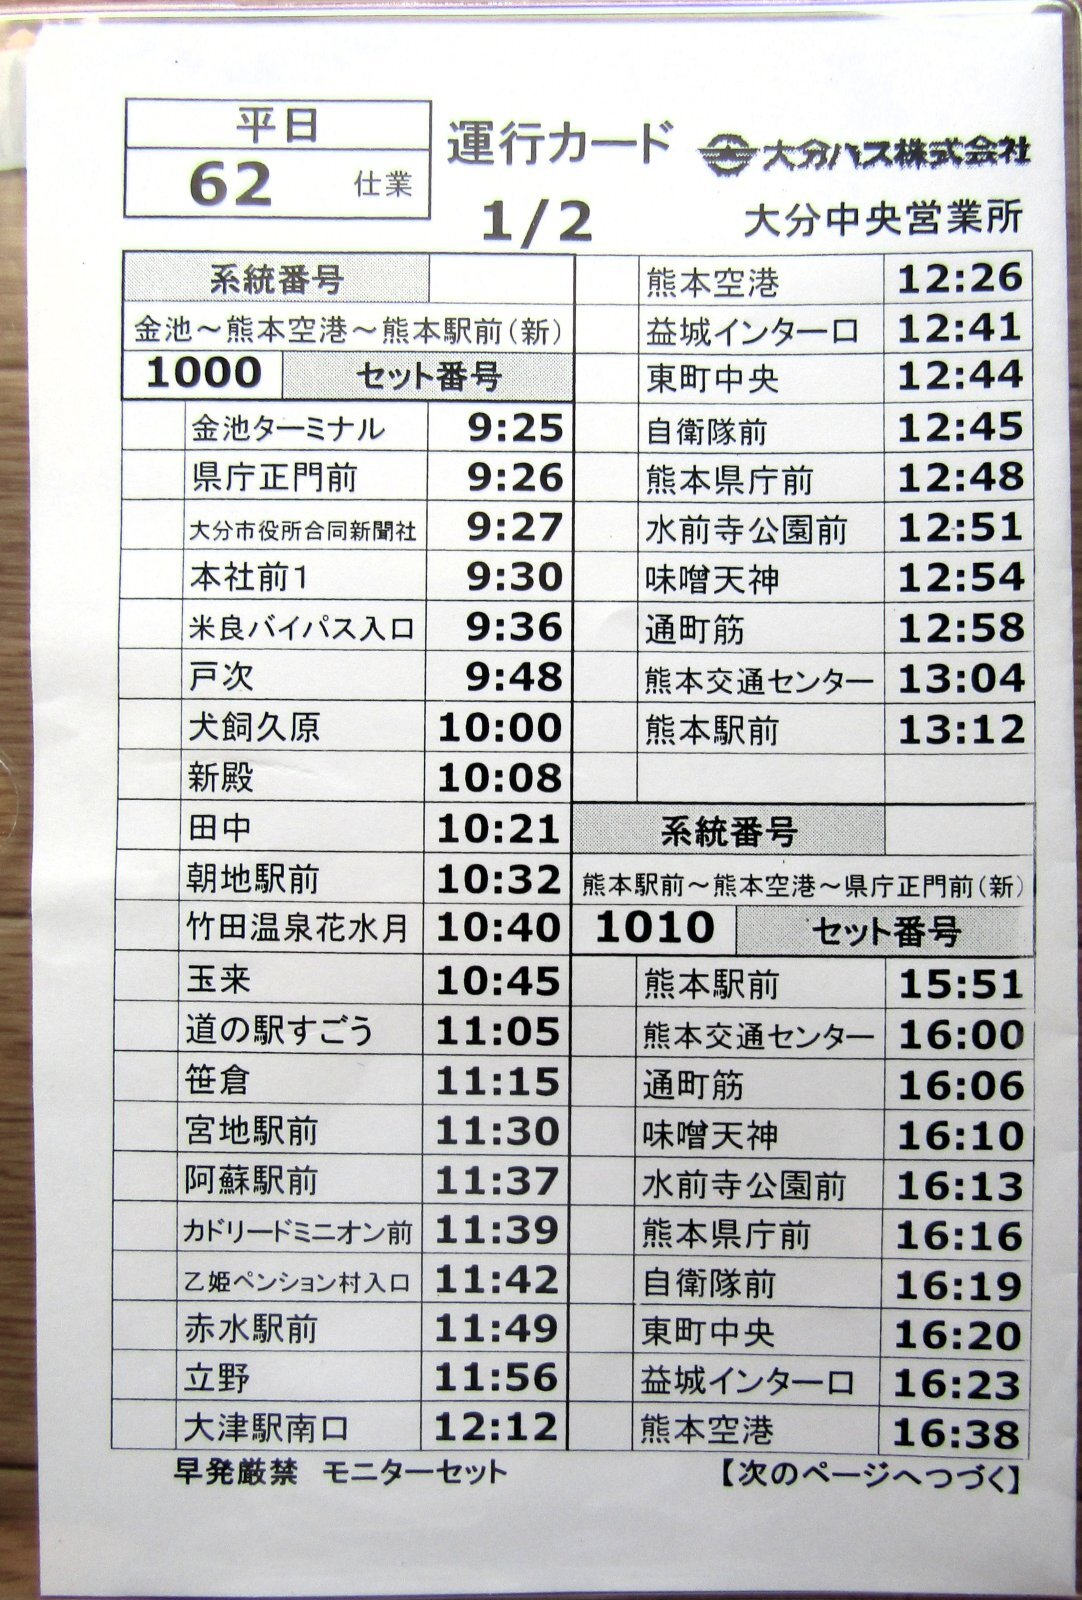 平日
62 仕業
運行カード
1/2
大分バス株式会社
大分中央営業所
系統番号
金池～熊本空港～熊本駅前(新)
1000 セット番号
金池ターミナル 9:25
県庁正門前 9:26
大分市役所合同新聞社 9:27
本社前1 9:30
米良バイパス入口 9:36
戸次 9:48
犬飼久原 10:00
新殿 10:08
田中 10:21
朝地駅前 10:32
竹田温泉花水月 10:40
玉来 10:45
道の駅すごう 11:05
笹倉 11:15
宮地駅前 11:30
阿蘇駅前 11:37
カドリードミニオン前 11:39
乙姫ペンション村入口 11:42
赤水駅前 11:49
立野 11:56
大津駅南口 12:12
熊本空港 12:26
益城インター口 12:41
東町中央 12:44
自衛隊前 12:45
熊本県庁前 12:48
水前寺公園前 12:51
味噌天神 12:54
通町筋 12:58
熊本交通センター 13:04
熊本駅前 13:12
系統番号
熊本駅前～熊本空港～県庁正門前(新)
1010 セット番号
熊本駅前 15:51
熊本交通センター 16:00
通町筋 16:06
味噌天神 16:10
水前寺公園前 16:13
熊本県庁前 16:16
自衛隊前 16:19
東町中央 16:20
益城インター口 16:23
熊本空港 16:38
早発厳禁 モニターセット
【次のページへつづく】